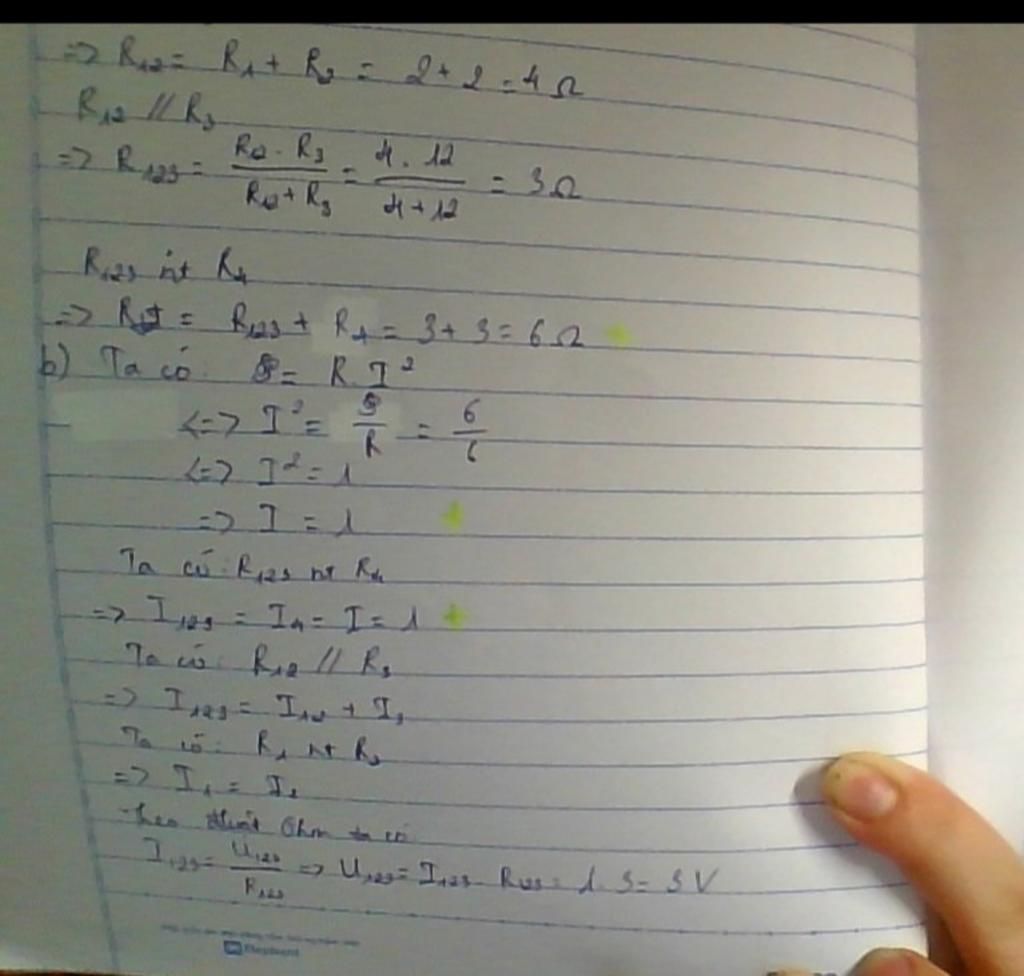 => R₁₂ = R₁ + R₂ = 2 + 2 = 4 Ω
R₁₂ // R₃
=> R₁₂₃ = (R₁₂ . R₃)/(R₁₂ + R₃) = (4 . 12)/(4 + 12) = 3 Ω
R₁₂₃ nt R₄
=> R = R₁₂₃ + R₄ = 3 + 3 = 6 Ω
b) Ta có: = R.I²
<=> I² = /R = 6/6
<=> I² = 1
=> I = 1
Ta có: R₁₂₃ nt R₄
=> I₁₂₃ = I₄ = I = 1
Ta có: R₁₂ // R₃
=> I₁₂₃ = I₁₂ + I₃
Ta có: R₁ nt R₂
=> I₁ = I₂
theo Ohm ta có
I₁₂₃ = U₁₂₃/R₁₂₃ => U₁₂₃ = I₁₂₃ R₁₂₃ = 1.3 = 3V